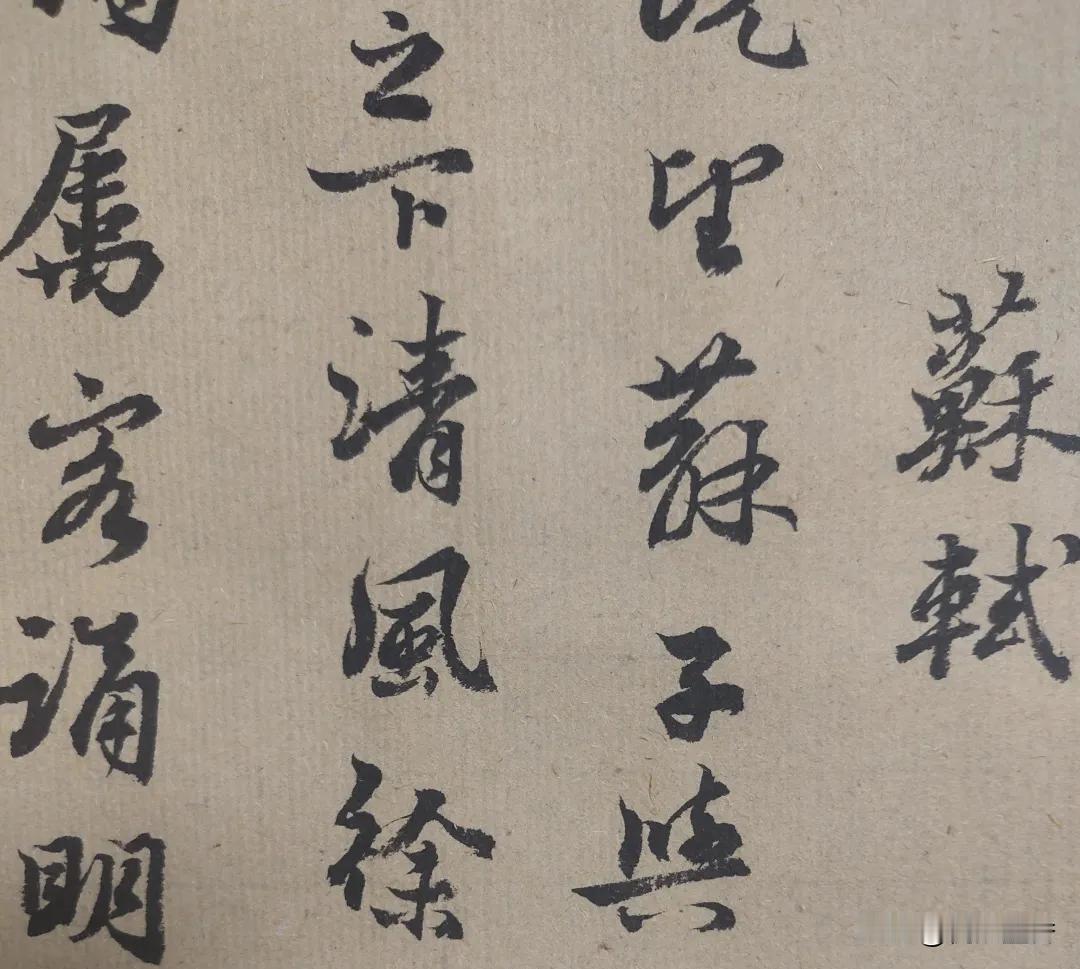 蘇軾
既望蘇子與
之下清風徐
属客誦明